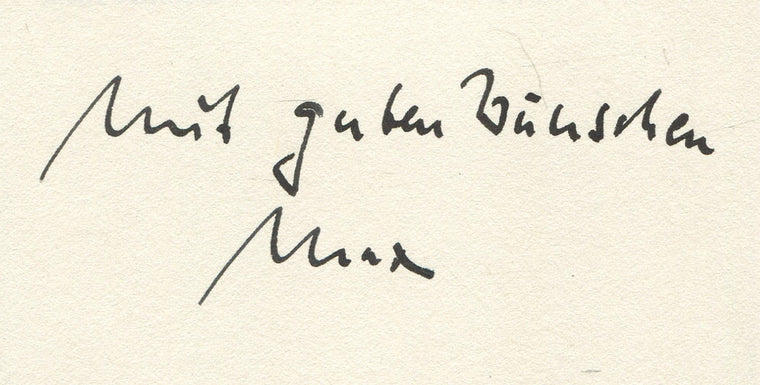 Mit guten Wünschen
Max